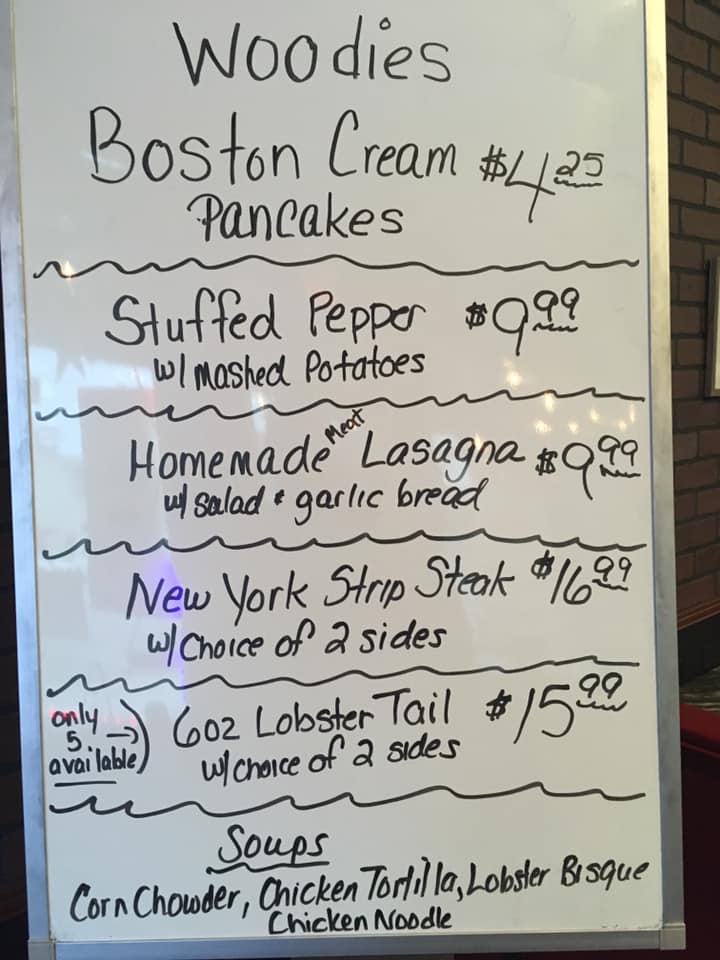 Woodies
Boston Cream $4.25
Pancakes
Stuffed Pepper $9.99
w/ mashed Potatoes
Homemade Meat Lasagna $9.99
w/ salad & garlic bread
New York Strip Steak $16.99
w/ Choice of 2 sides
only 5 available → 6oz Lobster Tail $15.99
w/ choice of 2 sides
Soups
Corn Chowder, Chicken Tortilla, Lobster Bisque
Chicken Noodle